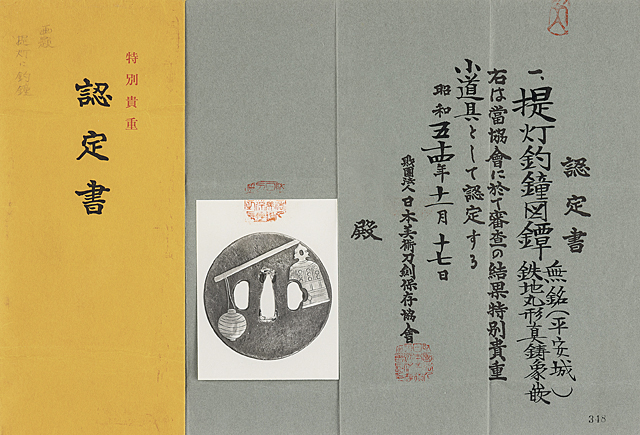 特別貴重
認定書
認定書
一、提灯釣鐘図鐔 無銘(平安城)
鉄地丸形真鍮象嵌
右は當協會に於て審査の結果特別貴重
小道具として認定する
昭和五十四年十一月十七日
財團法人日本美術刀剣保存協會
殿
348